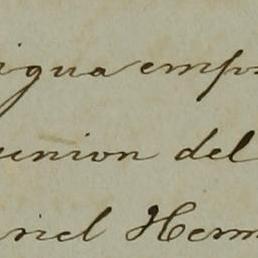 igua emp
union del
riel Herm